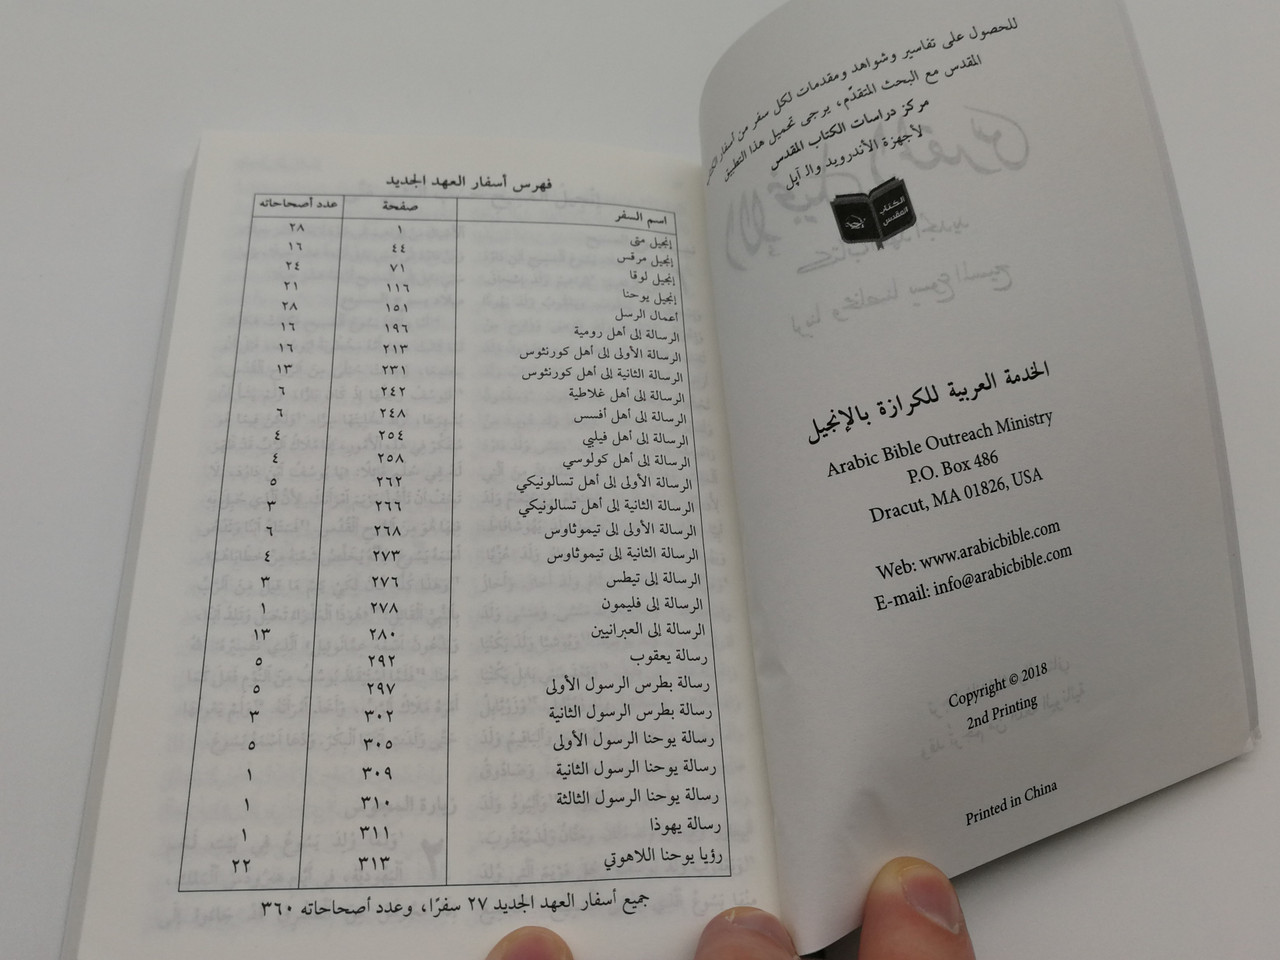 للحصول على تفاسير وشواهد ومقدمات لكل سفر من أسفار
المقدس مع البحث المتقدّم، يرجى تحميل هذا التطبيق
مركز دراسات الكتاب المقدس
لأجهزة الأندرويد والـ آپل
الكتاب
المقدس
الخدمة العربية للكرازة بالإنجيل
Arabic Bible Outreach Ministry
P.O. Box 486
Dracut, MA 01826, USA
Web: www.arabicbible.com
E-mail: info@arabicbible.com
Copyright © 2018
2nd Printing
Printed in China
فهرس أسفار العهد الجديد
اسم السفر صفحة عدد أصحاحاته
إنجيل متى ١ ٢٨
إنجيل مرقس ٤٤ ١٦
إنجيل لوقا ٧١ ٢٤
إنجيل يوحنا ١١٦ ٢١
أعمال الرسل ١٥١ ٢٨
الرسالة إلى أهل رومية ١٩٦ ١٦
الرسالة الأولى إلى أهل كورنثوس ٢١٣ ١٦
الرسالة الثانية إلى أهل كورنثوس ٢٣١ ١٣
الرسالة إلى أهل غلاطية ٢٤٢ ٦
الرسالة إلى أهل أفسس ٢٤٨ ٦
الرسالة إلى أهل فيلبي ٢٥٤ ٤
الرسالة إلى أهل كولوسي ٢٥٨ ٤
الرسالة الأولى إلى أهل تسالونيكي ٢٦٢ ٥
الرسالة الثانية إلى أهل تسالونيكي ٢٦٦ ٣
الرسالة الأولى إلى تيموثاوس ٢٦٨ ٦
الرسالة الثانية إلى تيموثاوس ٢٧٣ ٤
الرسالة إلى تيطس ٢٧٦ ٣
الرسالة إلى فليمون ٢٧٨ ١
الرسالة إلى العبرانيين ٢٨٠ ١٣
رسالة يعقوب ٢٩٢ ٥
رسالة بطرس الرسول الأولى ٢٩٧ ٥
رسالة بطرس الرسول الثانية ٣٠٢ ٣
رسالة يوحنا الرسول الأولى ٣٠٥ ٥
رسالة يوحنا الرسول الثانية ٣٠٩ ١
رسالة يوحنا الرسول الثالثة ٣١٠ ١
رسالة يهوذا ٣١١ ١
رؤيا يوحنا اللاهوتي ٣١٣ ٢٢
جميع أسفار العهد الجديد ٢٧ سفرًا، وعدد أصحاحاته ٣٦٠